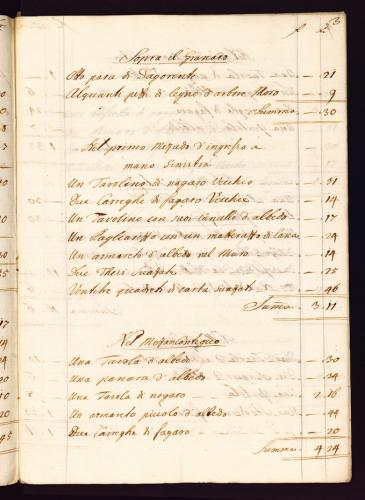 23
Sopra il Granaro
Otto para di — 21
Alquanti pezzi di legno d'arbore Moro — 9
Summa — 30
Nel primo Mezado d'ingresso a
mano sinistra
Un Tavolino di nogaro Vecchio — 31
Due Careghe di fagaro Vecchie — 14
Un Tavolino con suoi cavalli d'albedo — 17
Un Pagliarizzo con un matterazzo di lana — 24
Un armaro d'albedo nel Muro — 14
Due — 25
quadreti di carta — 46
Suma — 3.11
Nel
Una Tavola d'albedo — 30
Una panara d'albedo — 24
Una Tavola di nogaro — 2.16
Un armaro picolo d'albedo — 44
Due Careghe di fagaro — 20
Summa — 4 24